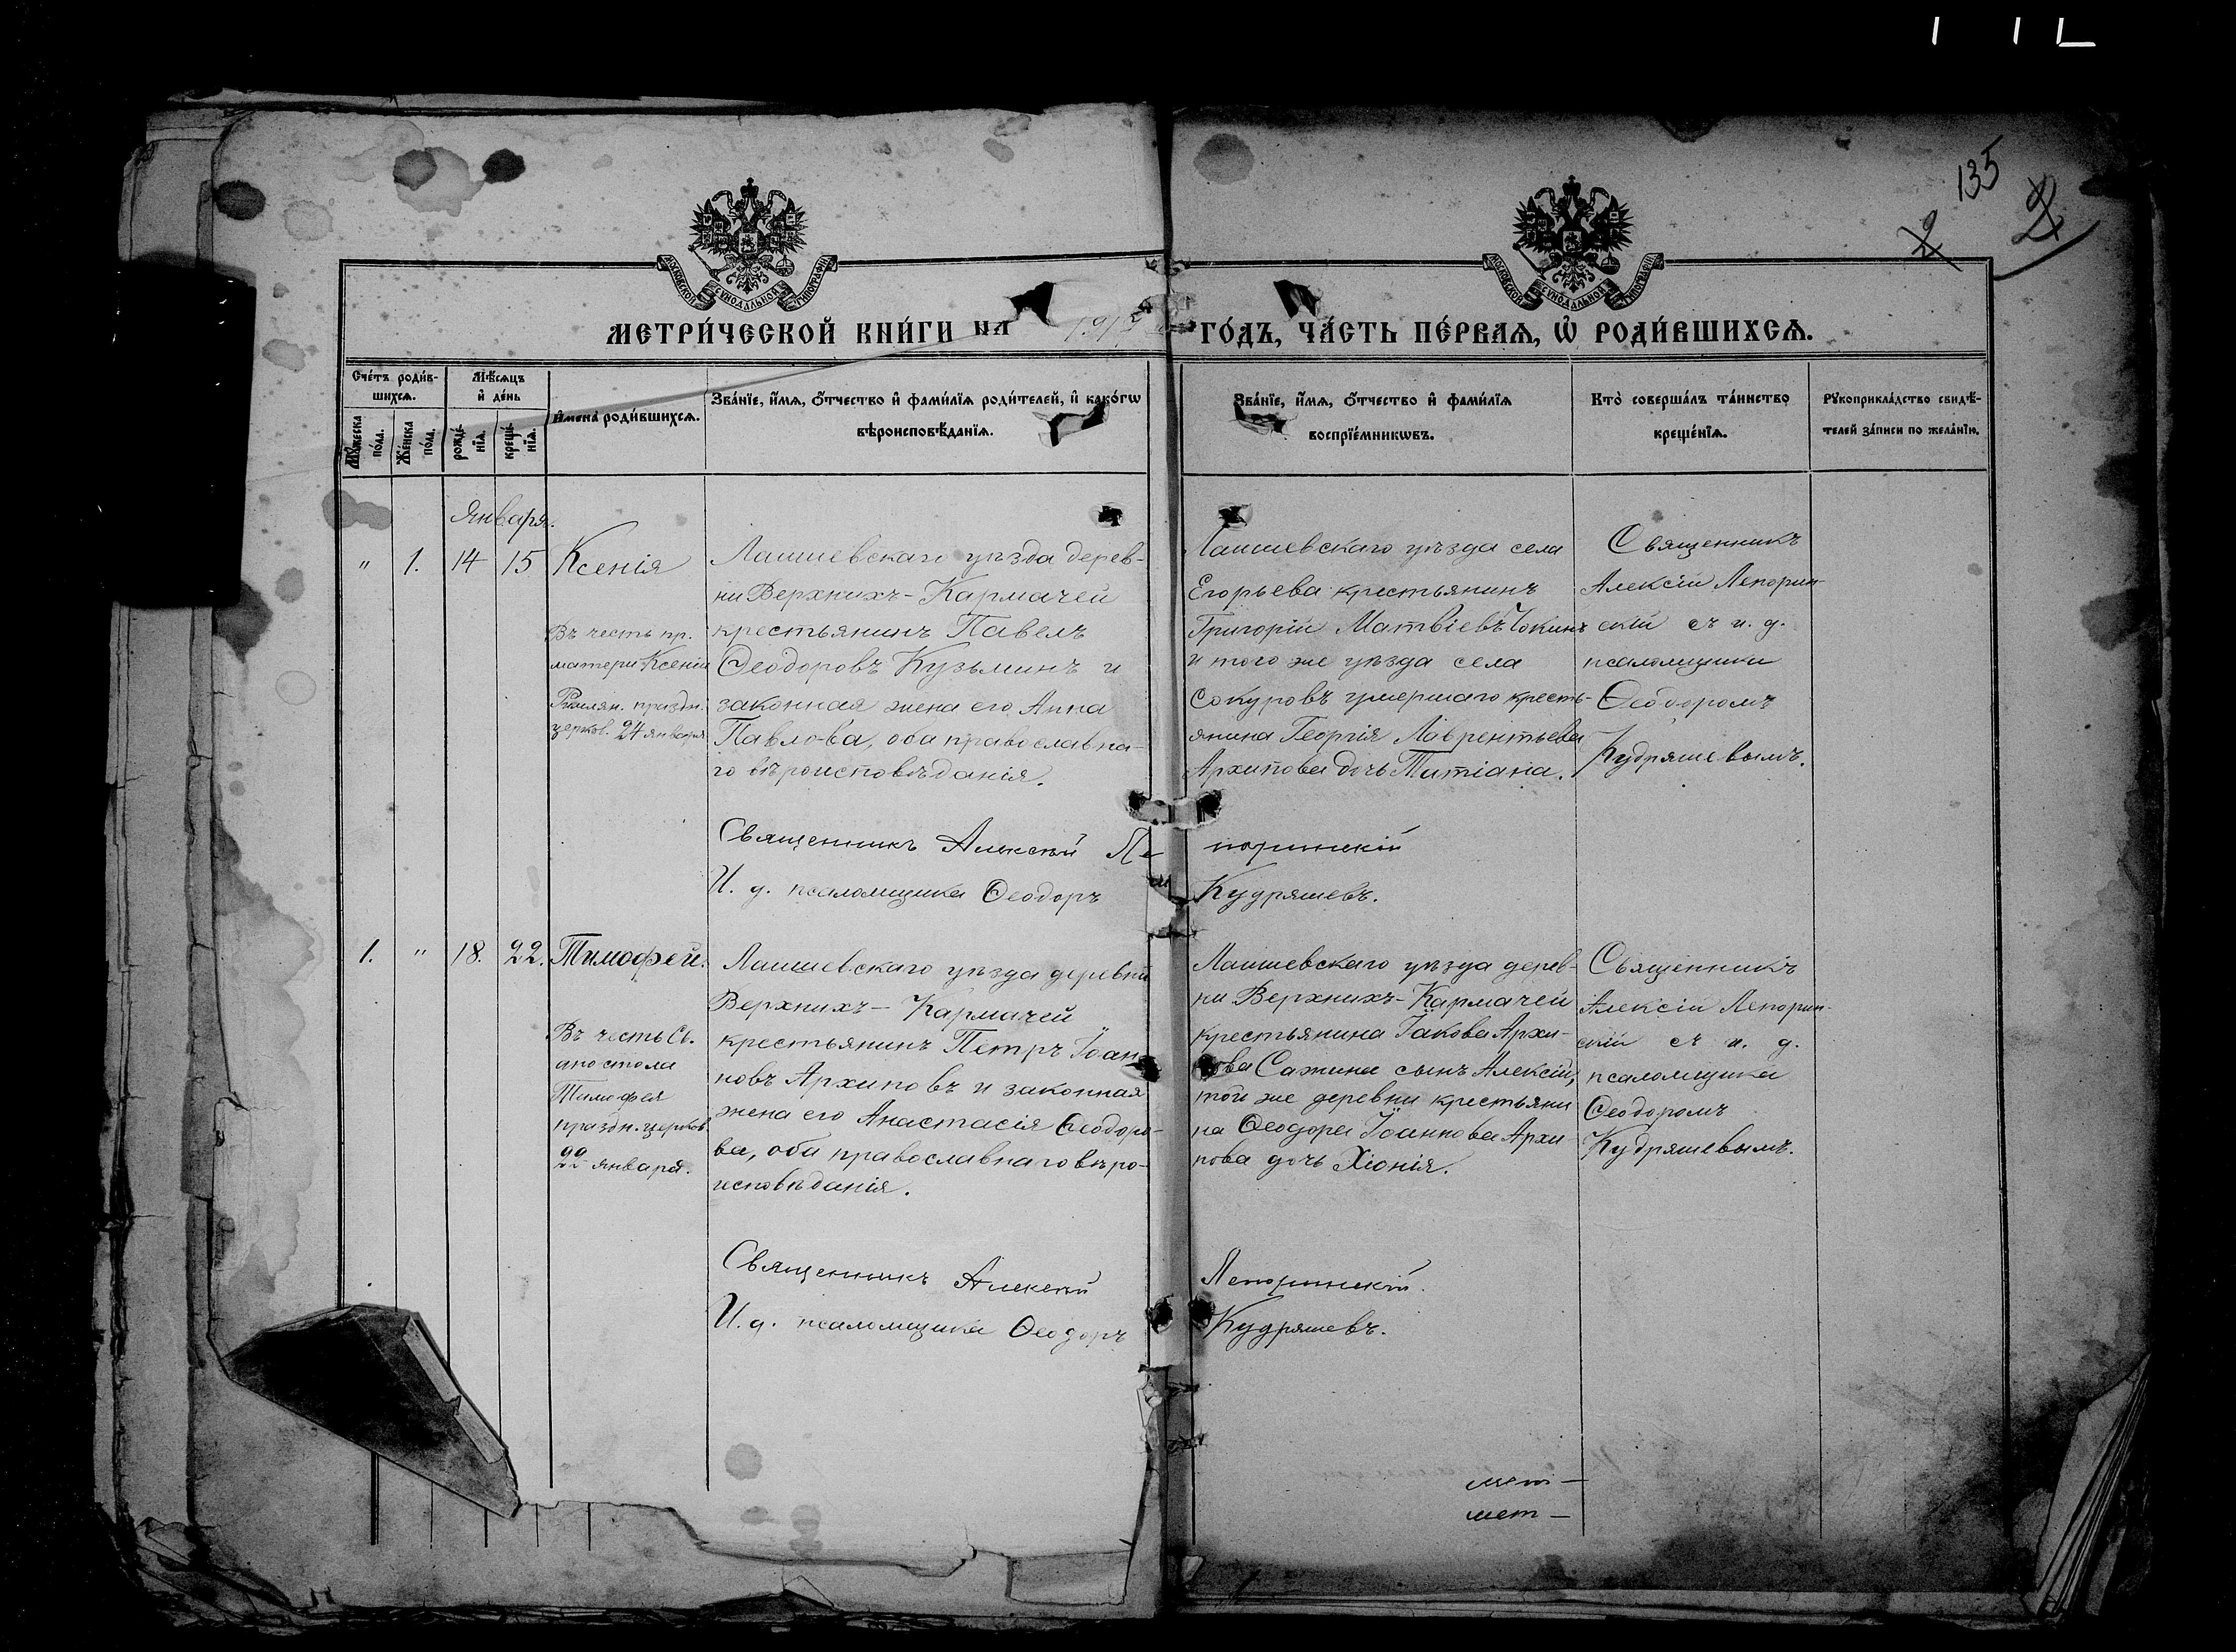 135
2
2
МОСКОВСКОЙ СУНОДАЛЬНОЙ ТИПОГРАФІИ
МОСКОВСКОЙ СУНОДАЛЬНОЙ ТИПОГРАФІИ
МЕТРИ́ЧЕСКОЙ КНИ́ГИ НА 1915
ГО́ДЪ, ЧА́СТЬ ПЕ́РВАЯ, Ѡ҆ РОДИ́ВШИХСЯ.
Сче́тъ роди́в-
шихся.
Му́жеска
по́ла.
Же́нска
по́ла.
Мѣ́сяцъ
и҆ де́нь
рожде́-
нїя.
креще́-
нїя.
И҆мена̀ роди́вшихся.
Зва́нїе, и҆́мя, ѻ҆́тчество и҆ фами́лїя роди́телей, и҆ како́гѡ
вѣроисповѣ́данїя.
Зва́нїе, и҆́мя, ѻ҆́тчество и҆ фами́лїя
воспрїе́мникѡвъ.
Кто̀ соверша́лъ та́инство
креще́нїя.
Рꙋкоприкла́дство свидѣ́-
телей за́писи по жела́нїю.
Января.
" 1. 14 15 Ксенія
Въ честь пр.
матери Ксеніи
Римлян. праздн.
церков. 24 января
Лаишевскаго уѣзда дерев-
ни Верхнихъ-Кармачей
крестьянинъ Павелъ
Ѳеодоровъ Кузьминъ и
законная жена его Анна
Павлова, оба православна-
го вѣроисповѣданія.
Лаишевскаго уѣзда села
Егорьева крестьянинъ
Григорій Матвіевъ Чокинъ
и того же уѣзда села
Сокуровъ умершаго кресть-
янина Георгія Лаврентьева
Архипова дочь Татіана.
Священникъ
Алексій Лепорин-
скій съ и. д.
псаломщика
Ѳеодоромъ
Кудряшевымъ.
Священникъ Алексѣй Ле
поринскій
И. д. псаломщика Ѳеодоръ
Кудряшевъ.
1. " 18. 22. Тимофей.
Въ честь Св.
апостола
Тимофея
праздн. церков.
22 января.
Лаишевскаго уѣзда деревни
Верхнихъ-Кармачей
крестьянинъ Петръ Іоан-
новъ Архиповъ и законная
жена его Анастасія Ѳеодоро-
ва, оба православнаго вѣро-
исповѣданія.
Лаишевскаго уѣзда дерев-
ни Верхнихъ-Кармачей
крестьянина Іакова Архи-
пова Сажина сынъ Алексій,
той же деревни крестьяни
на Ѳеодора Іоаннова Архи
пова дочь Хіонія.
Священникъ
Алексій Лепорин-
скій съ и. д.
псаломщика
Ѳеодоромъ
Кудряшевымъ.
Священникъ Алексѣй
Лепоринскій.
И. д. псаломщика Ѳеодоръ
Кудряшевъ.